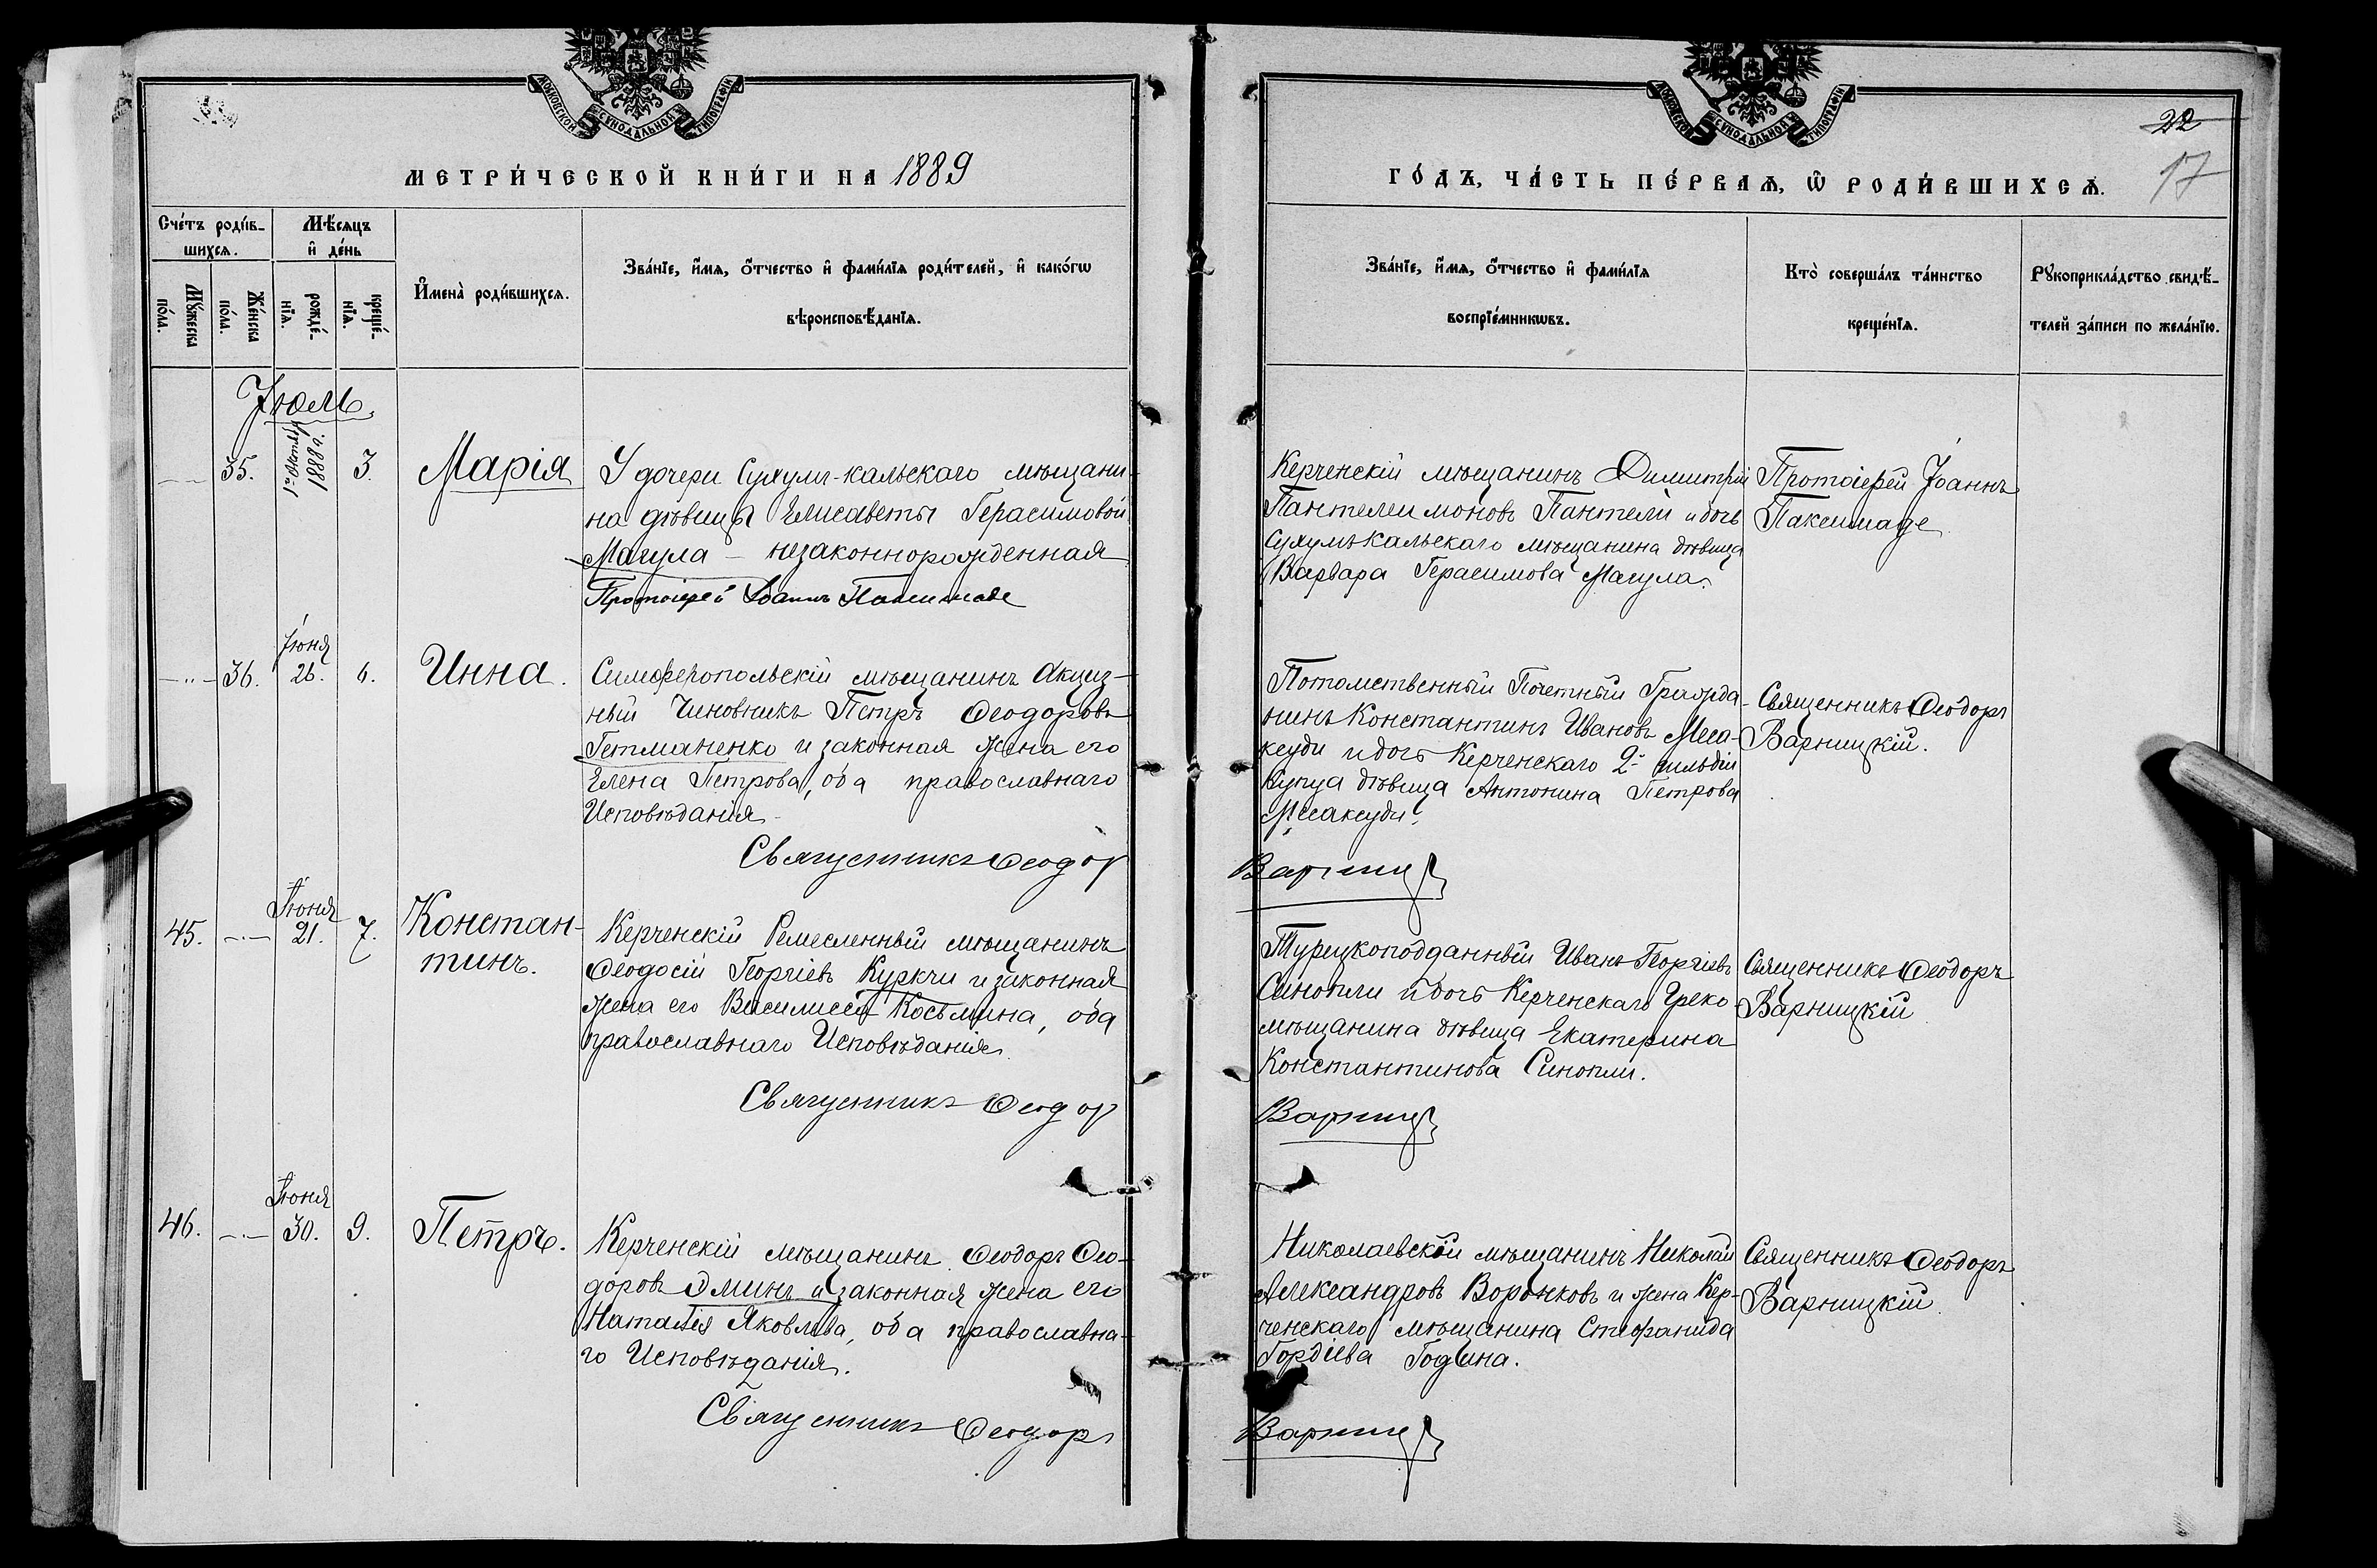 МОСКОВСКОЙ СѴНОДАЛЬНОЙ ТИПОГРАФІИ
МЕТРИ́ЧЕСКОЙ КНИ́ГИ НА 1889
Сче́тъ роди́в-
шихся.
Мѣ́сяцъ
и҆ де́нь
Мꙋ́жеска
по́ла.
Же́нска
по́ла.
рожде́-
нїѧ.
креще́-
нїѧ.
И҆мена̀ роди́вшихсѧ.
Зва́нїе, и҆́мѧ, ѻ҆́тчество и҆ фами́лїѧ роди́телей, и҆ како́гѡ
вѣроисповѣ́данїѧ.
Іюль.
35.
1888 г.
3.
Марія
У дочери Сухумъ-кальскаго мѣщани-
на дѣвицы Елисаветы Герасимовой
Магула – незаконнорожденная
Протоіерей Іоаннъ Паксимаде
Іюня
36. 26. 6. Инна.
Симферопольскій мѣщанинъ Акциз-
ный Чиновникъ Петръ Ѳеодоровъ
Гетманенко и законная жена его
Елена Петрова, оба православнаго
Исповѣданія
Священникъ Ѳеодор
Іюня
45. 21. 7. Констан-
тинъ.
Керченскій Ремесленный мѣщанинъ
Ѳеодосій Георгіевъ Куркчи и законная
жена его Василисса Косьмина, оба
православнаго Исповѣданія.
Священникъ Ѳеодор
Іюня
46. 30. 9. Петръ.
Керченскій мѣщанинъ Ѳеодоръ Ѳео-
доровъ Эминъ и законная жена его
Наталія Яковлева, оба православна-
го Исповѣданія.
Священникъ Ѳеодоръ
МОСКОВСКОЙ СѴНОДАЛЬНОЙ ТИПОГРАФІИ
22
17
ГО́ДЪ, ЧА́СТЬ ПЕ́РВАѦ, Ѡ҆ РОДИ́ВШИХСѦ.
Зва́нїе, и҆́мѧ, ѻ҆́тчество и҆ фами́лїѧ
воспрїе́мникѡвъ.
Кто̀ соверша́лъ та́инство
креще́нїѧ.
Рꙋкоприкла́дство свидѣ́-
телей за́писи по жела́нїю.
Керченскій мѣщанинъ Димитрій
Пантелеимоновъ Пантели и дочь
Сухумъ Кальскаго мѣщанина дѣвица
Варвара Герасимова Магула.
Протоіерей Іоаннъ
Паксимаде
Потомственный Почетный Гражда-
нинъ Константинъ Ивановъ Меса-
ксуди и дочь Керченскаго 2-й гильдіи
Купца дѣвица Антонина Петрова
Месаксуди.
Священникъ Ѳеодоръ
Варницкій.
Варниц
Турецкоподданный Иванъ Георгіевъ
Синопли и дочь Керченскаго Греко
мѣщанина дѣвица Екатерина
Константинова Синопли.
Священникъ Ѳеодоръ
Варницкій
Варниц
Николаевскій мѣщанинъ Николай
Александровъ Воронковъ и жена Кер-
ченскаго мѣщанина Стефанида
Гордіева Година.
Священникъ Ѳеодоръ
Варницкій.
Варниц